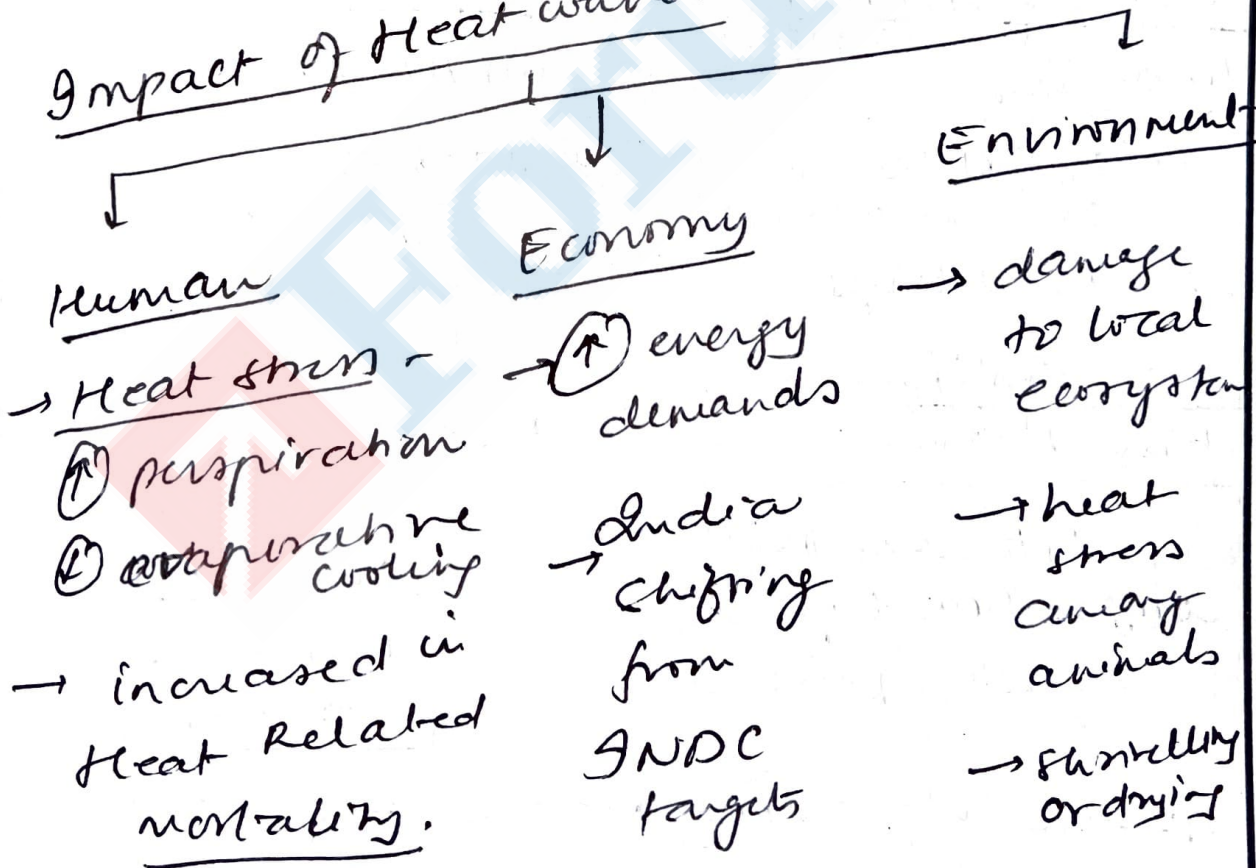 Impact of Heat
Human
→ Heat stress -
↑ perspiration
↓ evaporative
cooling
→ increased in
Heat Related
mortality.
Economy
→ ↑ energy
demands
→ India
shifting
from
INDC
targets
Environment
→ damage
to local
ecosystem
→ heat
stress
among
animals
→ shrivelling
or drying
Foru